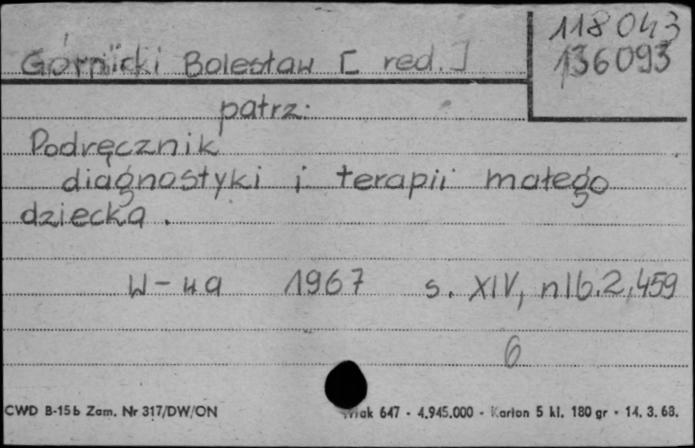 118 043
136093
Górnicki Bolesław [red.]
patrz:
Podręcznik
diagnostyki i terapii małego
dziecka.
W-wa 1967 s. XIV, nlb.2,459
6
CWD B-15b Zam. Nr 317/DW/ON 647 - 4.945.000 - Karton 5 kl. 180 gr - 14. 3. 68.